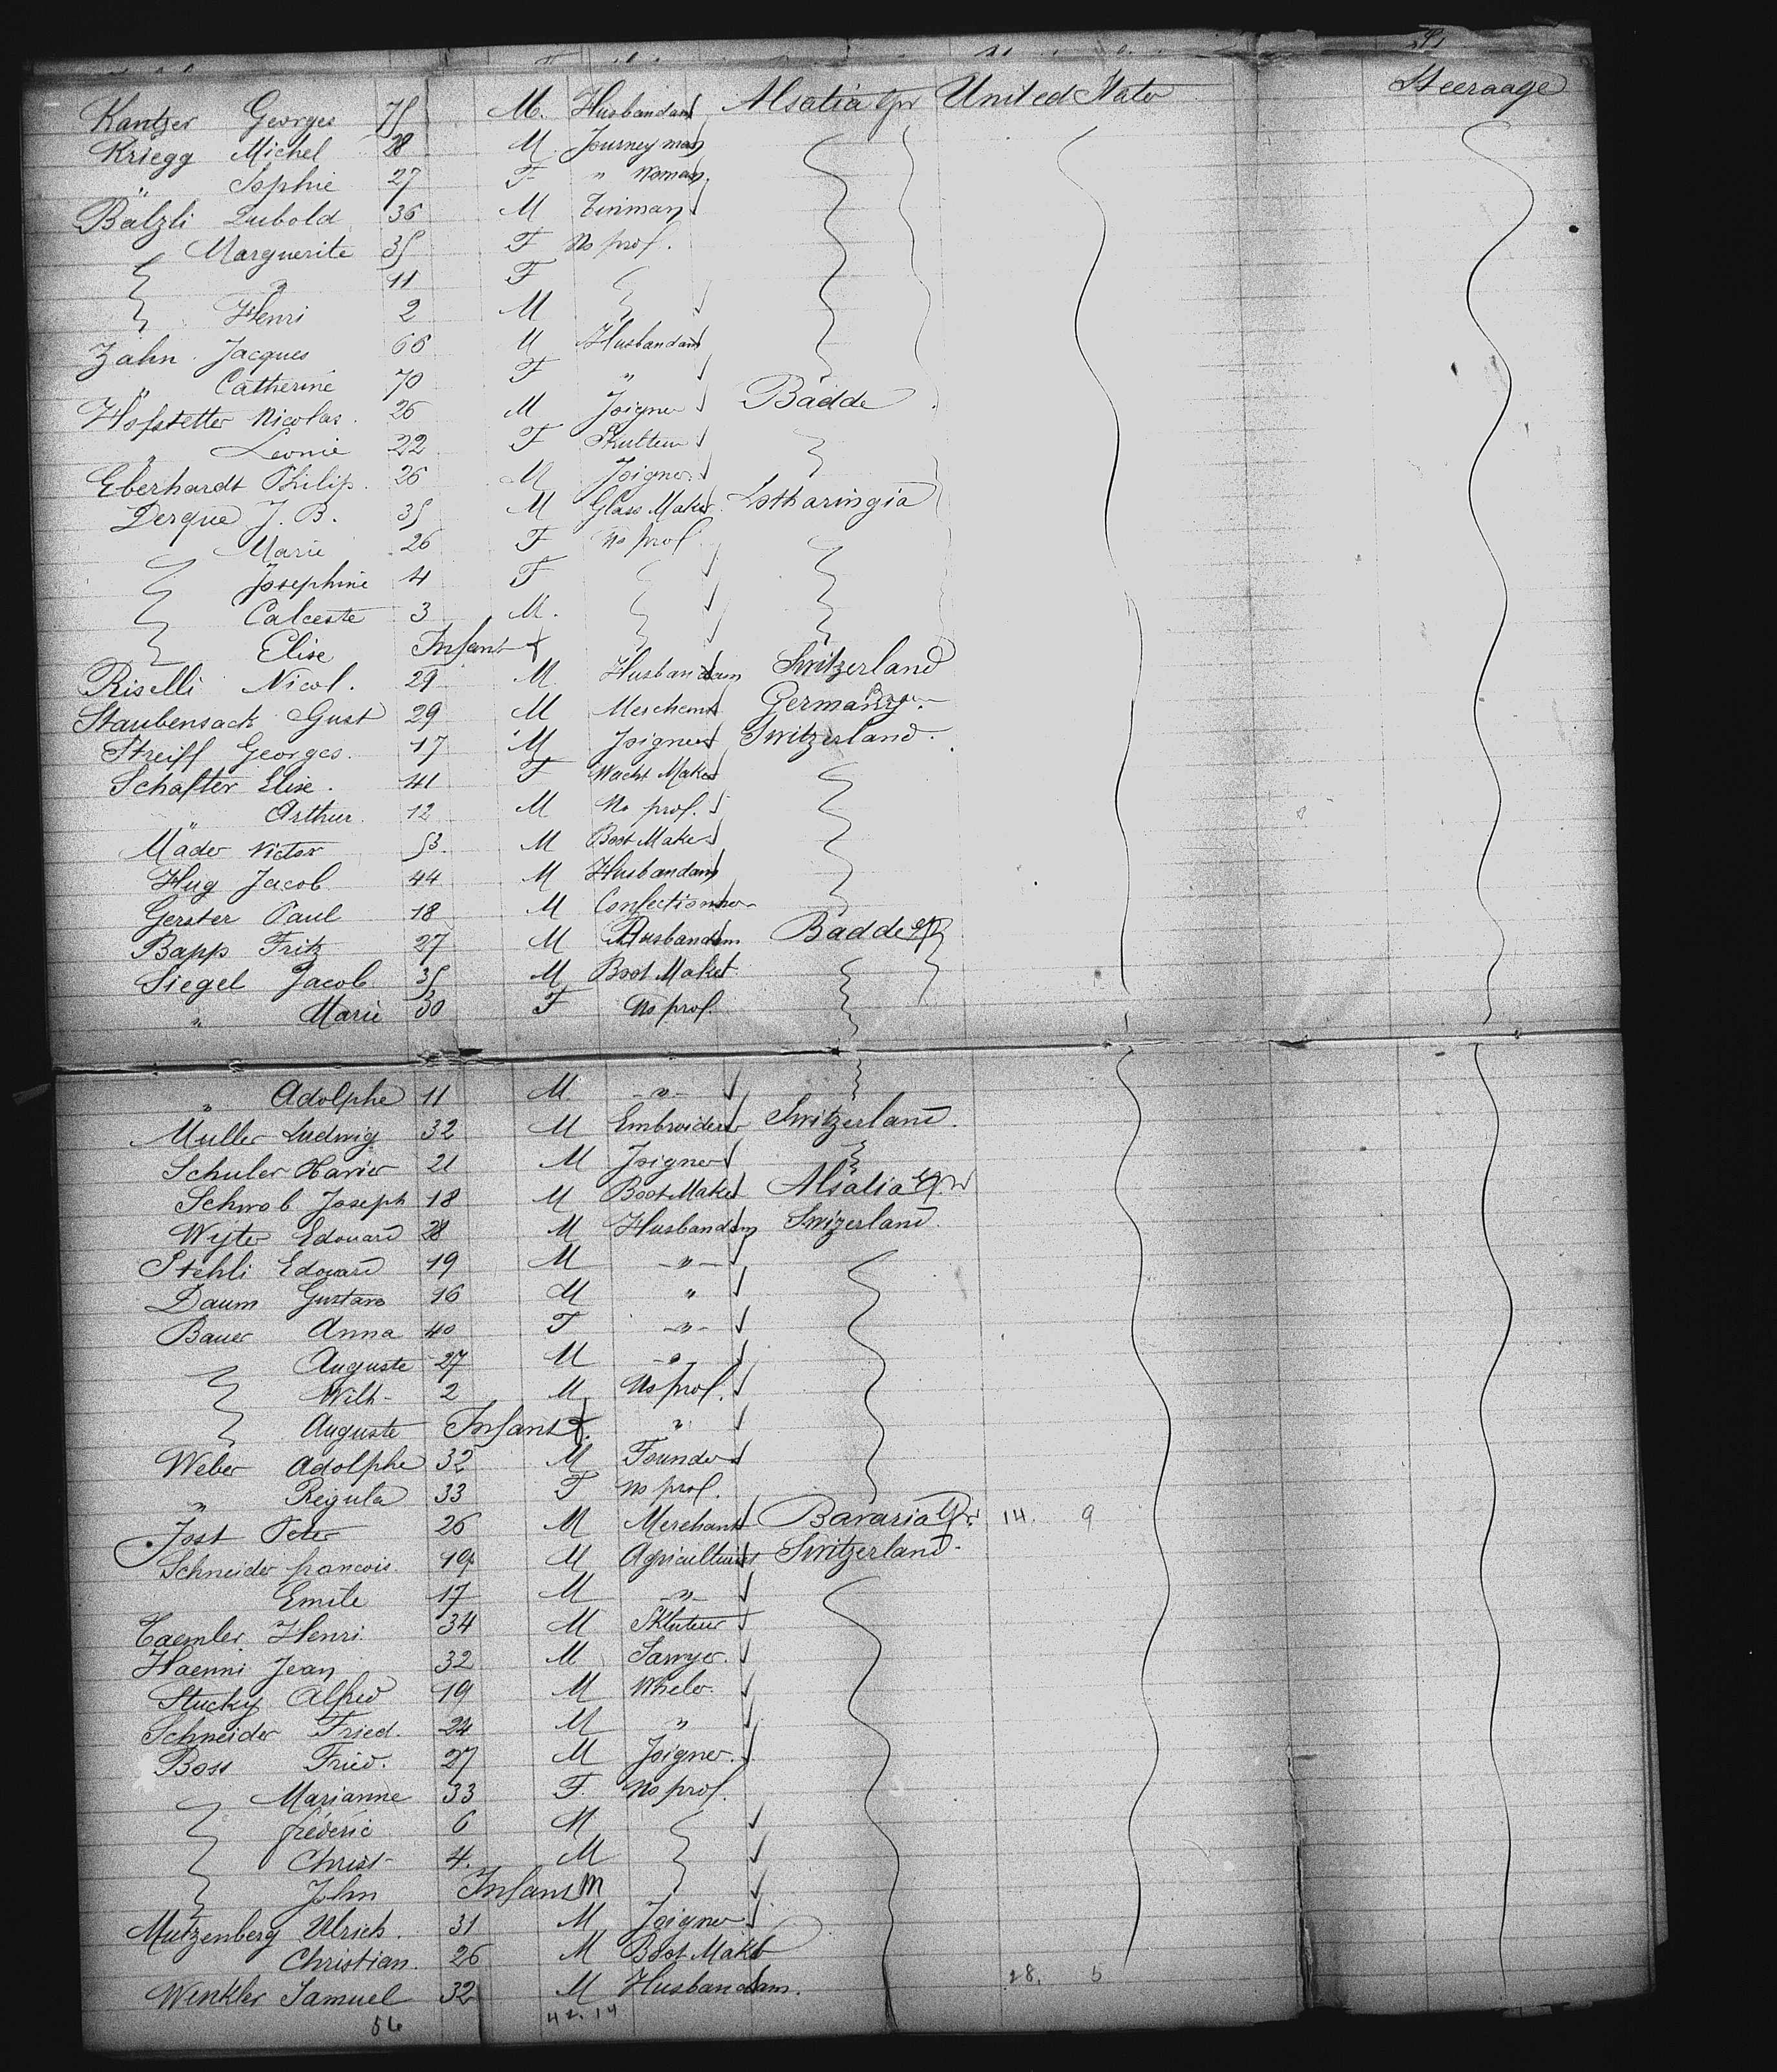 Kantzer Georges 75 M. Husbandam Alsatia Gr United State Steeraage
Kriegg Michel 28 M. Journey man
" Sophie 27 F " Woman
Bälzli Lubold 36 M Tinman
Marguerite 35 F No prof.
" 11 F
Henri 2 M
Zahn Jacques 66 M Husbandam
" Catherine 70 F "
Hofstetter Nicolas. 26 M Joigner Badde
" Leonie 22 F
Eberhardt Philip. 26 M Joigner.
Derque J. B. 35 M Glass Maker Lotharingia
Marie 26 F No prof
Josephine 4 F
Calceste 3 M.
Elise Infant
Riselli Nicol. 29 M Husbandam Switzerland
Staubensack Gust 29 M Merchent Germany
Streiff Georges. 17 M Joigner Switzerland.
Schafter Elise. 41 F Wacht Maker
" Arthur 12 M No prof.
Mäder Victor 53. M Boot Maker
Hug Jacob 44 M Husbandam
Gerster Paul 18 M Confectionner
Bapp Fritz 27 M Husbandam Badde Gr
Siegel Jacob 35 M Boot Maker
" Marie 30 F No prof.
" Adolphe 11 M - " -
Muller Ludwig 32 M Embroider Switzerland.
Schuler Xavier 21 M Joigner
Schwob Joseph 18 M Boot Maker Alsatia Gr
Wyter Edouard 28 M Husbandam Swizerland.
Stehli Edouard 19 M - " -
Daum Gustave 16 M "
Bauer Anna 40 F - " -
Auguste 27 M - " -
Wilh- 2 M No prof.
Auguste Infant "
Weber Adolphe 32 M Founder
" Regula 33 F No prof.
Jost Peter 26 M Merchant Bavaria Gr 14. 9
Schneider francois. 19 M Agriculturer Switzerland.
Emile 17 M - " -
Henri 34 M
Haenni Jean 32 M Sawyer.
Stucky Alfred 19 M Wheler.
Schneider Fried. 24 M "
Boss Fried. 27 M Joigner.
Marianne 33 F. No prof.
frederic 6 M
Christ- 4. M
John Infant M
Mutzenberg Ulrich. 31 M Joigner
Christian. 26 M Boot Maker
Winkler Samuel 32 M Husbandam. 28. 5
56 42. 14